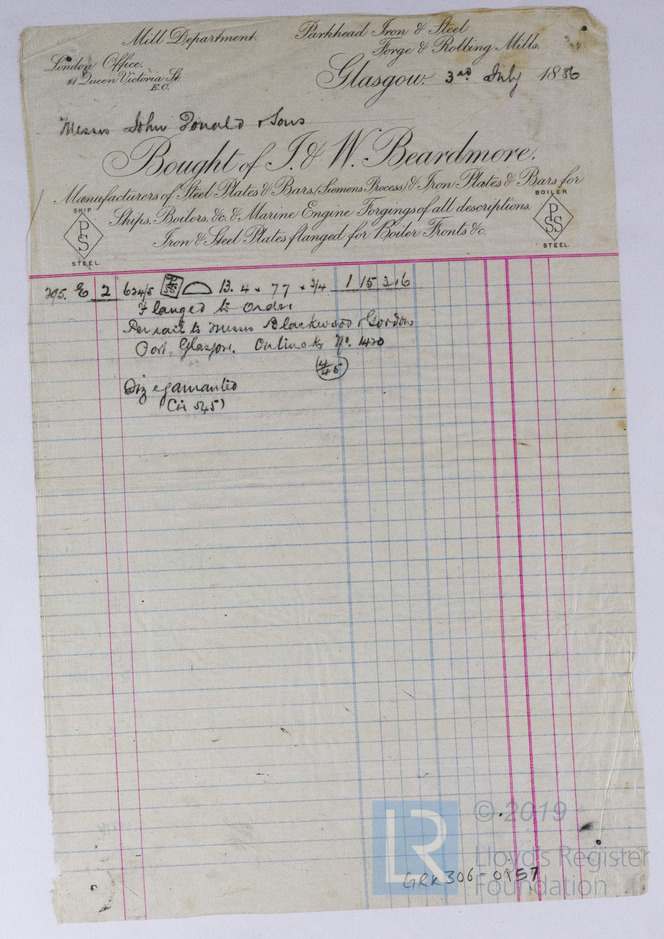 Mill Department.
Parkhead Iron & Steel
Forge & Rolling Mills.
London Office.
41 Queen Victoria St.
E.C.
Glasgow. 3rd July 1886
Messrs John Donald & Sons
Bought of I. & W. Beardmore.
Manufacturers of Steel Plates & Bars, (Siemens Process) & Iron Plates & Bars for
Ships, Boilers, &c. & Marine Engine Forgings of all descriptions.
Iron & Steel Plates flanged for Boiler Fronts &c.
SHIP
PSS
STEEL
BOILER
PSS
STEEL.
E 2 634/5 13.4 × 77 × 3/4 1 15 3 16
Flanged to Order
Per rail to Messrs Blackwood & Gordon
Port Glasgow. No. 1420
4/45
(Cir 545)
© 2019
LR
Lloyd's Register
Foundation
GRK306-0157